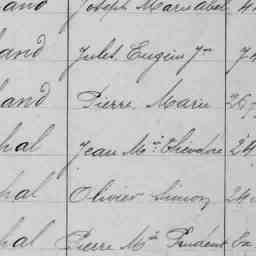 and Joseph Marie
and Jules Eugène J.
land Pierre Marie 26
hal Jean Mie Théodore 24
hal Olivier Simon 24
hal Pierre Mie Prudent